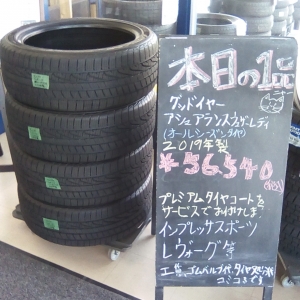 本日の1品
グッドイヤー
アシュアランスウェザーレディ
(オールシーズンタイヤ)
2019年製
¥56,540
(税込)
プレミアムタイヤコートを
サービスでお付けします!
インプレッサスポーツ
レヴォーグ等
工賃、ゴムバルブ代、タイヤ処分料
コミコミです